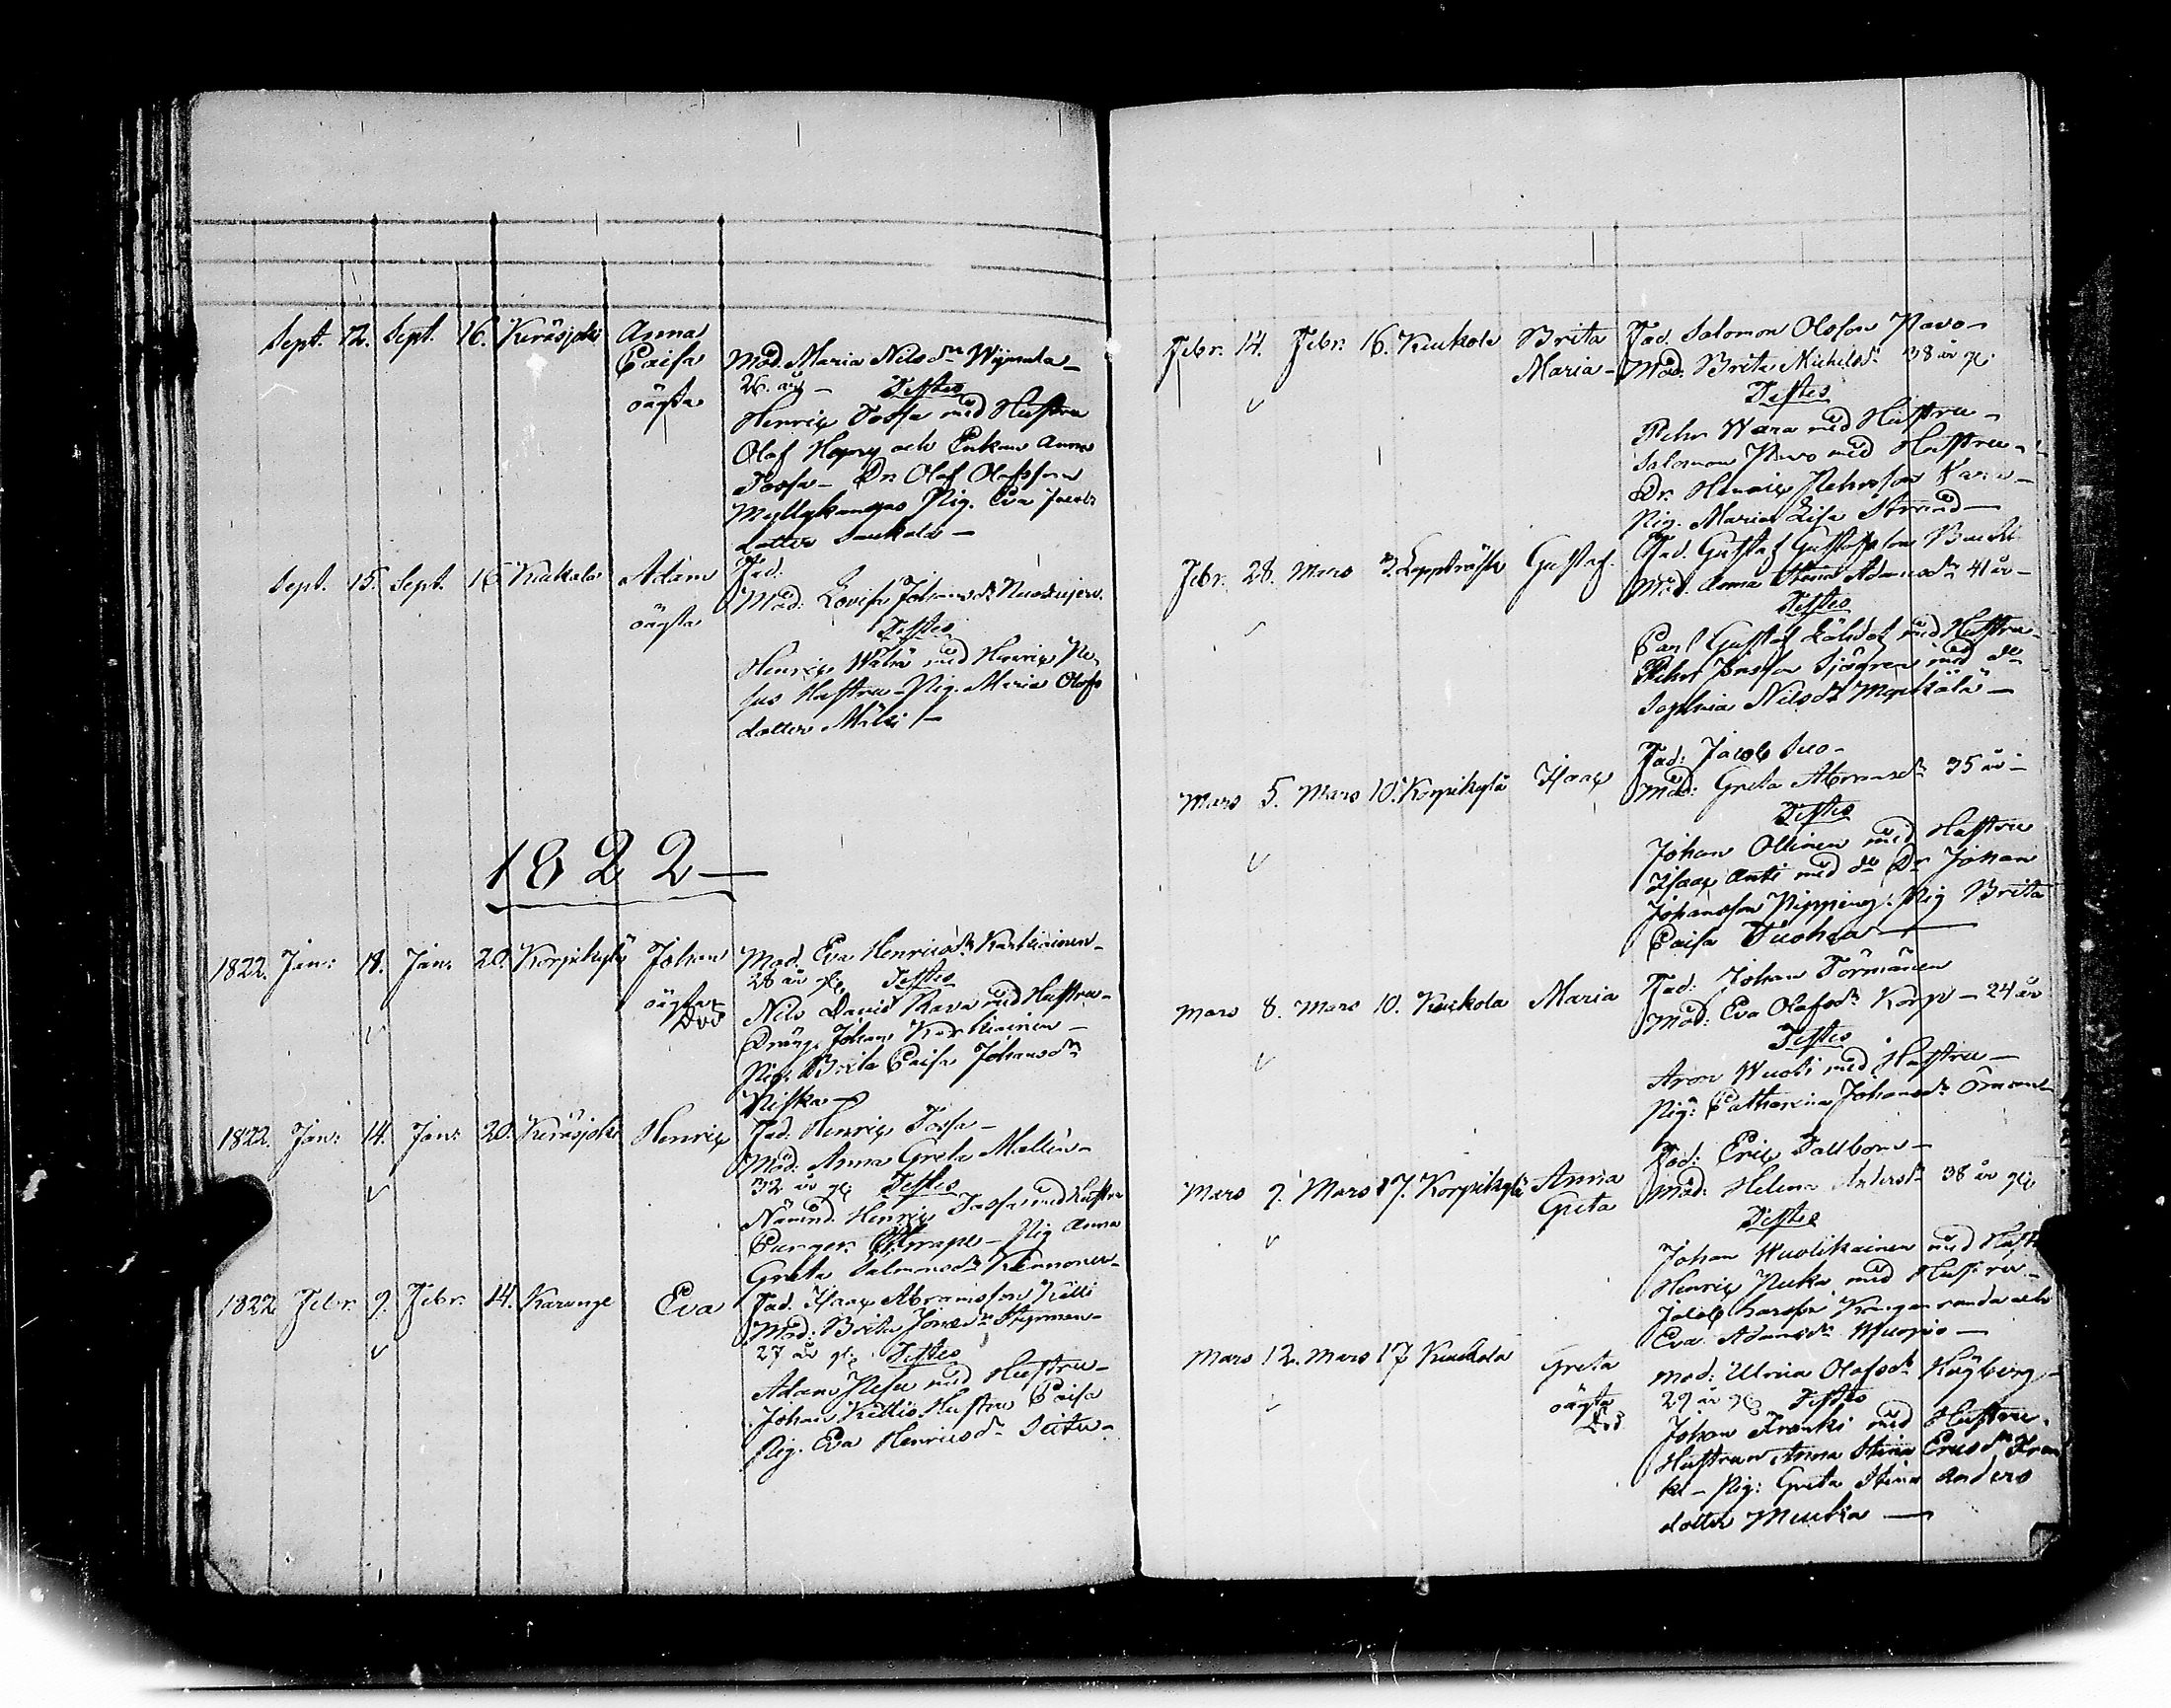 Sept. 12. Sept. 16. Keräsjoki Anna
Caisa
oägta
Mod. Maria Nilsdr
26. år - Testes
Henric Tossa med Hustru
Olof Heggy och Enkan Anna
Tossa - Dr. Olof Olofsson
Myllykangas Pig. Eva Jacobs
dotter Saukola -
Sept. 15. Sept. 16. Kuckola Adam
oägta
Fad:
Mod: Lovisa Johansdr
Testes
Henric med Henric
Hustru - Pig. Maria Olofs
dotter Mäki -
1822 -
1822. Jan: 18. Jan: 20. Korpikylä Johan
oägta
Död
Mod. Eva Henricsdr Karkiainen -
28 år gl. Testes
Nils David Rava med Hustru -
Dräng. Johan Karkiainen -
Pig. Brita Caisa Johansdr
Niska -
1822. Jan: 14. Jan: 20. Keräsjoki Henric
Fad: Henric Tossa -
Mod: Anna Greta Mallin -
32 år gl. Testes
Nämnd. Henric Tossa med Hustru
Pig Anna
Greta Salmonsdr
1822 Febr. 9. Febr. 14. Karunge Eva
Fad. Isaac Abramsson Kätti
Mod: Brita Jönsdr
27 år gl. Testes
Adam med Hustru -
Johan Hustru Caisa
Pig. Eva Henricsdr
Febr. 14. Febr. 16. Kuckola Brita
Maria -
Fad. Salomon Olofson Pavo -
Mod. Brita Michelsdr 38 år gl.
Testes
Pehr Wara med Hustru -
Salomon Pavo med Hustru -
Dr. Henric Pehrsson Vara -
Pig. Maria Lisa Strand -
Febr. 28. Mars 3. Leppträsk Gustaf.
Fad. Gustaf Gustafsson
Mod. Anna Stina Adamsdr 41 år -
Testes
Carl Gustaf med Hustru -
Pehr Sjögren med do
Sophia Nilsdr
Mars 5. Mars 10. Korpikylä Isaac
Fad: Jacob Suo -
Mod: Greta Abramsdr 35 år -
Testes
Johan Ollinen med Hustru
Isaac Anti med do Dr Johan
Johansson Pipping. Pig Brita
Caisa Tuohea -
Mars 8. Mars 10. Kuckola Maria
Fad: Johan Törmänen
Mod: Eva Olofsdr Korpi - 24 år
Testes
Aron Wuoti med Hustru -
Pig: Catharina Johansdr
Mars 9. Mars 17. Korpikylä Anna
Greta
Fad: Eric Tallborn -
Mod: Helena Andersdr 38 år gl.
Testes
Johan Wuolikainen med
Henric med Hustru -
Jacob Larsson
Eva Adamsdr Wuopio -
Mars 12. Mars 17 Kuckola Greta
oägta
Död
Mod: Ulrica Olofsdr Högberg -
29 år gl. Testes
Johan Franki med Hustru.
Hustrun Anna Stina Ericsdr Fran
ki - Pig: Greta Stina Anders
dotter Mukka -